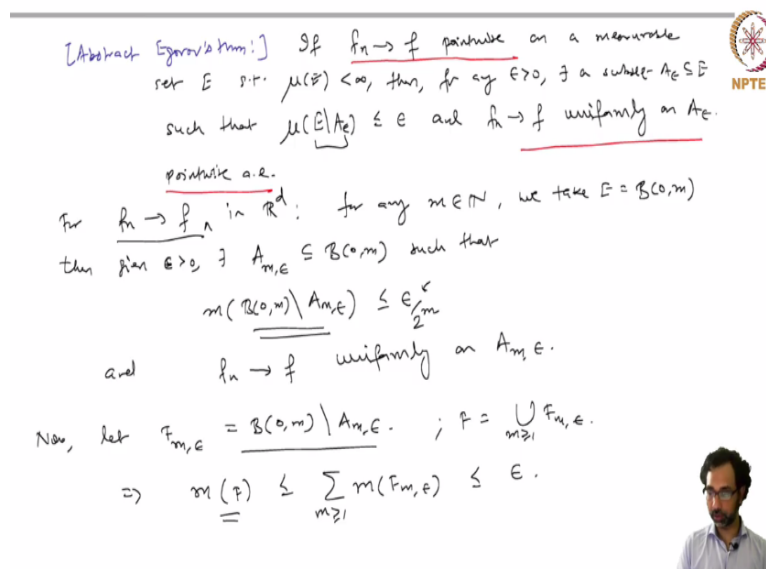 [Abstract Egorov's thm:] If fn → f pointwise on a measurable
set E s.t. μ(E) < ∞, then, for any ϵ>0, ∃ a subset A_ϵ ⊆ E
NPTE
such that μ(E\A_ϵ) ≤ ϵ and fn → f uniformly on A_ϵ.
pointwise a.e.
For fn → f ∧ in ℝ^d : for any m∈ℕ, we take E = B(0,m)
then given ϵ>0, ∃ A_{m,ϵ} ⊆ B(0,m) such that
m(B(0,m)\A_{m,ϵ}) ≤ ϵ/2^m
and fn → f uniformly on A_{m,ϵ}.
Now, let F_{m,ϵ} = B(0,m)\A_{m,ϵ}. ; F = ⋃_{m≥1} F_{m,ϵ}.
⇒ m(F) ≤ ∑_{m≥1} m(F_{m,ϵ}) ≤ ϵ.